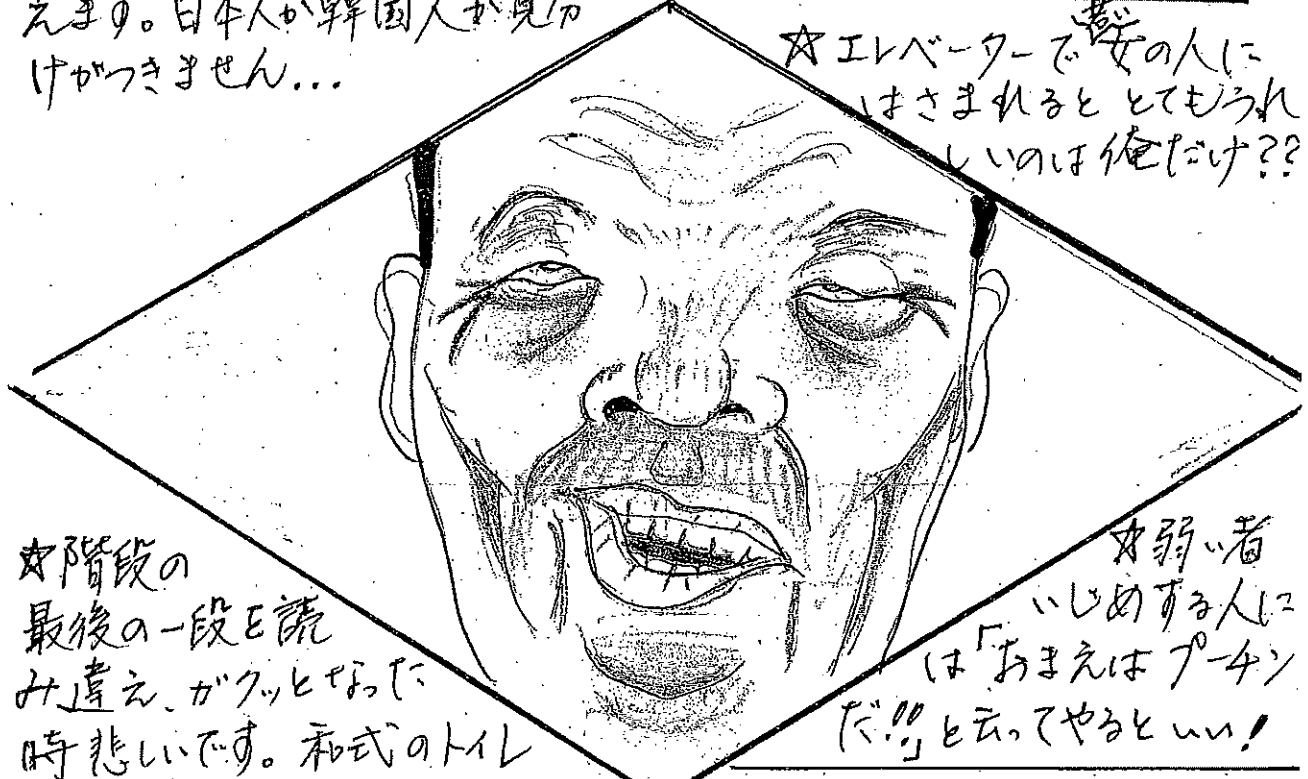 えます。日本人か韓国人か見分
けがつきません...
☆エレベーターで若い女の人に
はさまれると とてもうれ
しいのは俺だけ??
☆階段の
最後の一段を読
み違え、ガクッとなった
時悲しいです。和式のトイレ
☆弱い者
いじめする人に
は「おまえは プーチン
だ!!」と云ってやるといい!